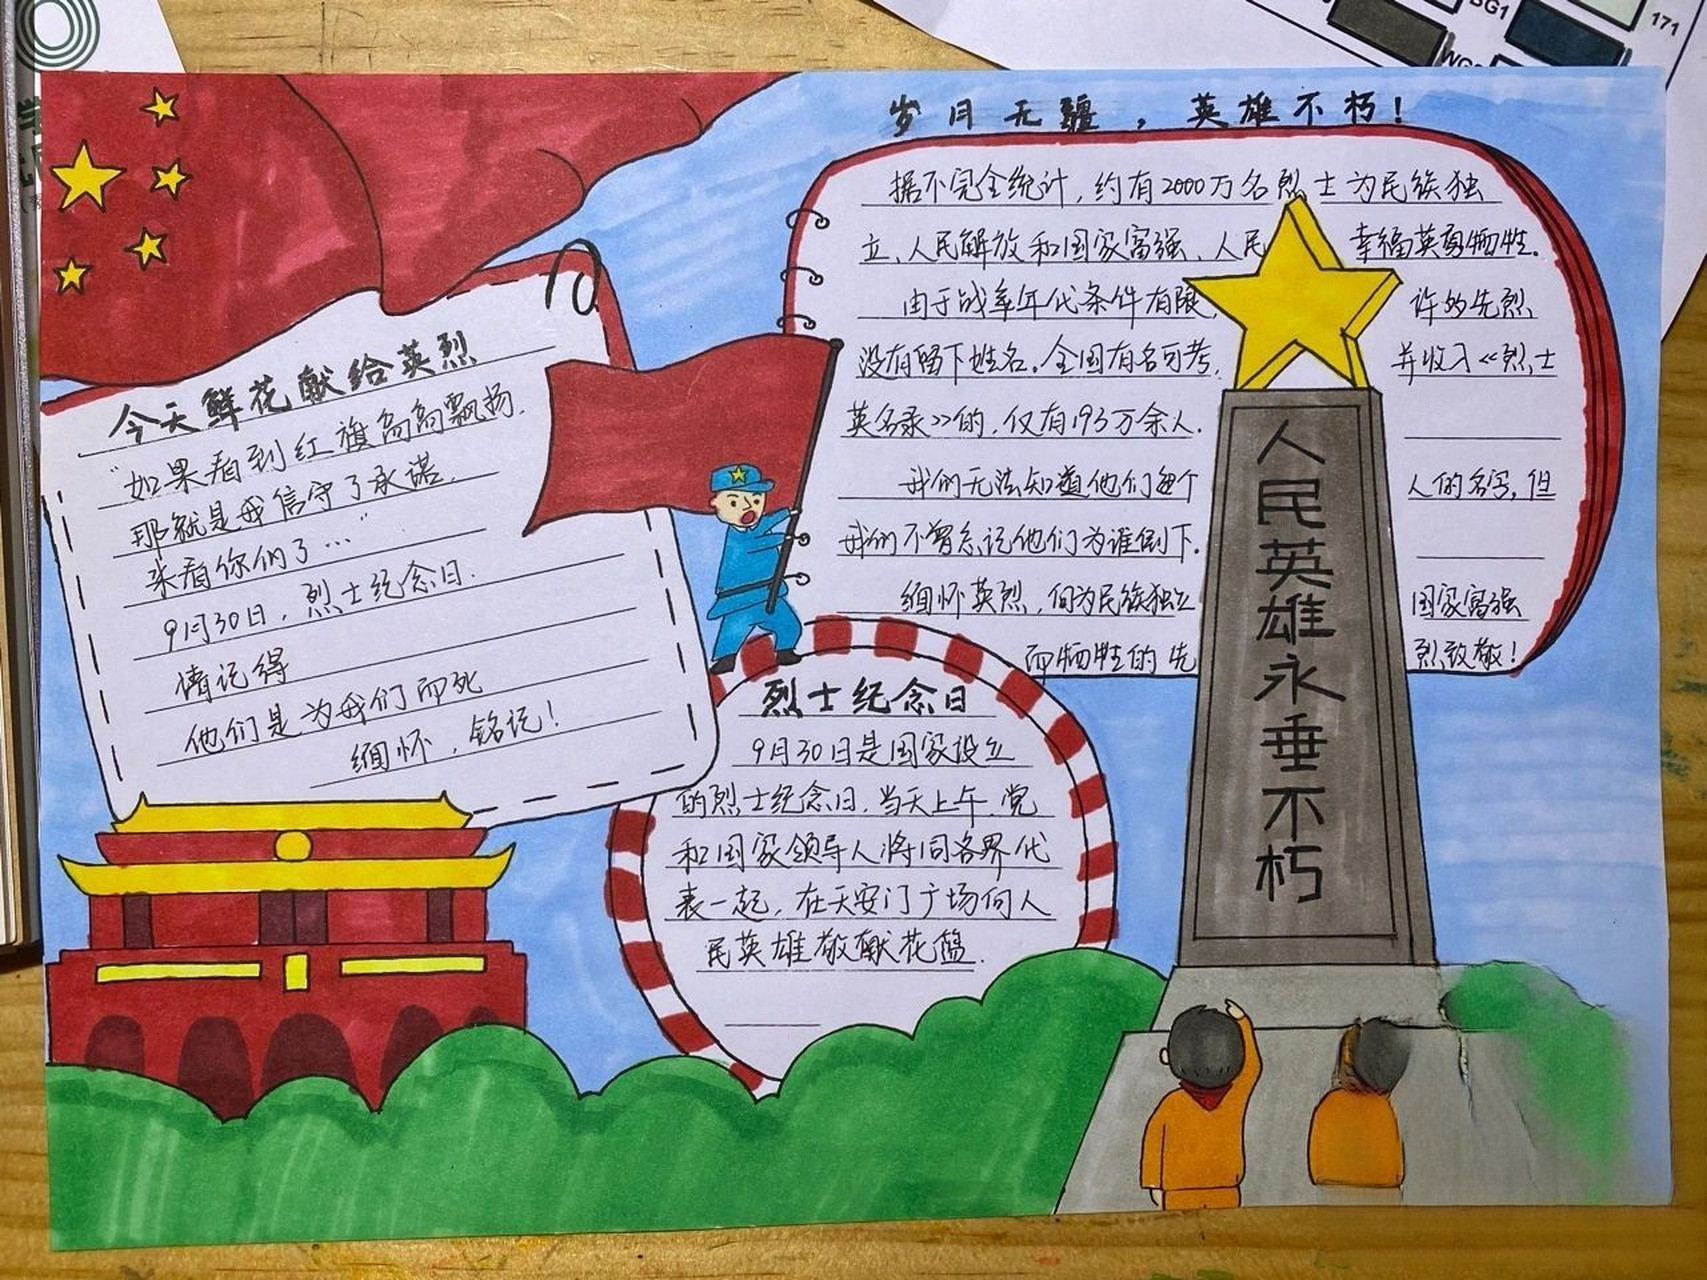 今天鲜花献给英烈
“如果看到红旗高高飘扬.
那就是我信守了承诺.
来看你们了…”
9月30日，烈士纪念日.
请记得
他们是为我们而死
缅怀，铭记！
岁月无疆，英雄不朽！
据不完全统计，约有2000万名烈士为民族独
立、人民解放和国家富强、人民 幸福英勇牺牲.
由于战争年代条件有限, 许的先烈
没有留下姓名.全国有名可考, 并收入《烈士
英名录》的,仅有193万余人.
我们无法知道他们每个 人的名字,但
我们不曾忘记他们为谁倒下.
缅怀英烈,向为民族独立 国家富强
而牺牲的先 烈致敬!
烈士纪念日
9月30日是国家设立
的烈士纪念日,当天上午,党
和国家领导人将同各界代
表一起,在天安门广场向人
民英雄敬献花篮.
人民英雄永垂不朽
BG1
171